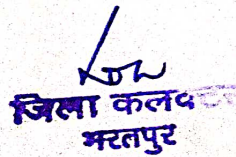 जिला कलक
भरतपुर